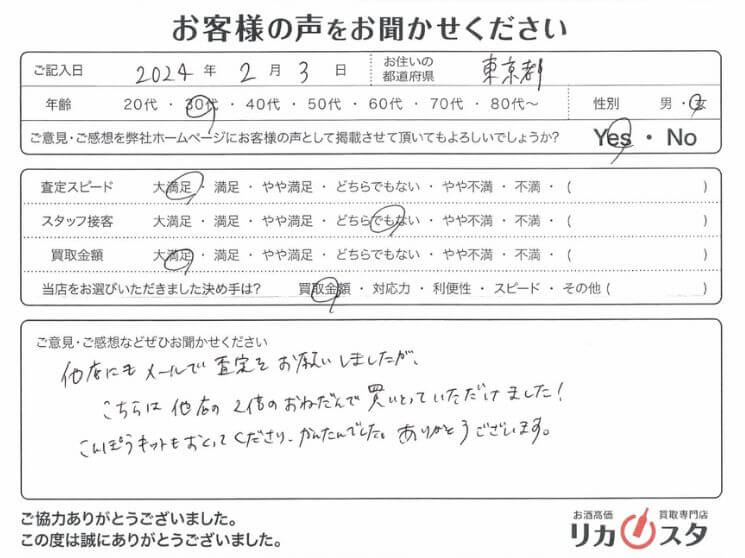 お客様の声をお聞かせください
ご記入日 2024 年 2 月 3 日 お住いの都道府県 東京都
年齢 20代・30代・40代・50代・60代・70代・80代～ 性別 男・女
ご意見・ご感想を弊社ホームページにお客様の声として掲載させて頂いてもよろしいでしょうか? Yes・No
査定スピード 大満足・満足・やや満足・どちらでもない・やや不満・不満・( )
スタッフ接客 大満足・満足・やや満足・どちらでもない・やや不満・不満・( )
買取金額 大満足・満足・やや満足・どちらでもない・やや不満・不満・( )
当店をお選びいただきました決め手は? 買取金額・対応力・利便性・スピード・その他( )
ご意見・ご感想などぜひお聞かせください
他店にもメールで査定をお願いしましたが、
こちらは他店の2倍のおねだんで買いとっていただけました!
こんぽうキットもおくってくださり、かんたんでした。ありがとうございます。
ご協力ありがとうございました。
この度は誠にありがとうございました。
お酒高価 買取専門店
リカスタ